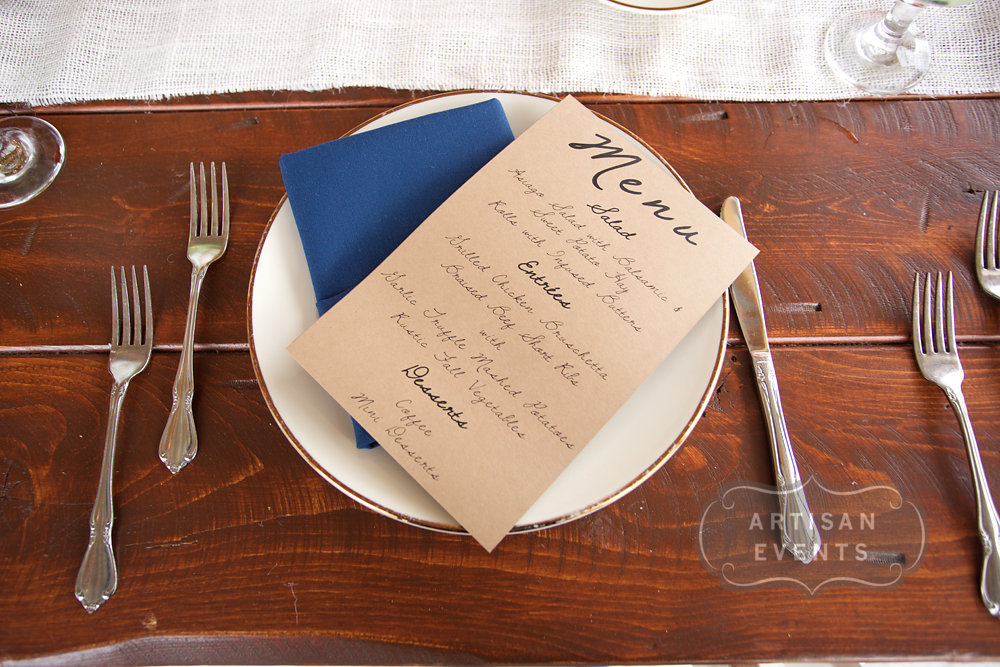 Menu
Salad
Asiago Salad with Balsamic &
Sweet Potato Hay
Rolls with Infused Butters
Entrées
Grilled Chicken Bruschetta
Braised Beef Short Ribs
with
Garlic Truffle Mashed Potatoes
Rustic Fall Vegetables
Desserts
Coffee
Mini Desserts
ARTISAN
EVENTS